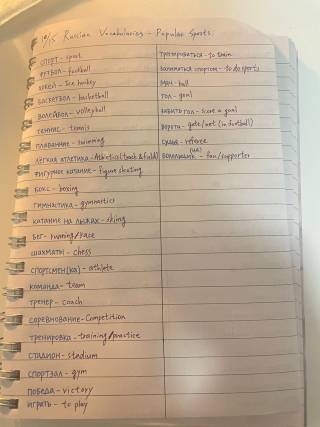 19/5 Russian Vocabularies - Popular Sports
СПОРТ - sport
ФУТБОЛ - football
ХОККЕЙ - Ice hockey
БАСКЕТБОЛ - basketball
ВОЛЕЙБОЛ - volleyball
ТЕННИС - tennis
ПЛАВАНИЕ - swimming
ЛЁГКАЯ АТЛЕТИКА - Athletics (track & field)
ФИГУРНОЕ КАТАНИЕ - Figure skating
БОКС - boxing
ГИМНАСТИКА - gymnastics
КАТАНИЕ НА ЛЫЖАХ - skiing
БЕГ - running/race
ШАХМАТЫ - chess
СПОРТСМЕН(КА) - athlete
КОМАНДА - team
ТРЕНЕР - coach
СОРЕВНОВАНИЕ - Competition
ТРЕНИРОВКА - training/practice
СТАДИОН - stadium
СПОРТЗАЛ - gym
ПОБЕДА - victory
ИГРАТЬ - to play
ТРЕНИРОВАТЬСЯ - to train
ЗАНИМАТЬСЯ СПОРТОМ - to do sports
МЯЧ - ball
ГОЛ - goal
ЗАБИТЬ ГОЛ - score a goal
ВОРОТА - gate/net (in football)
СУДЬЯ - referee
БОЛЕЛЬЩИК (ЦА) - fan/supporter